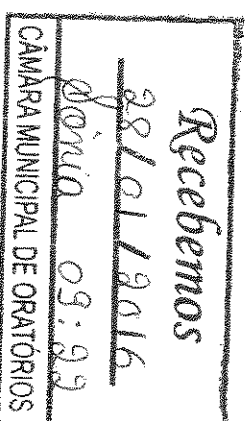 Recebemos
28/01/2016
Sonia 09:33
CÂMARA MUNICIPAL DE ORATÓRIOS